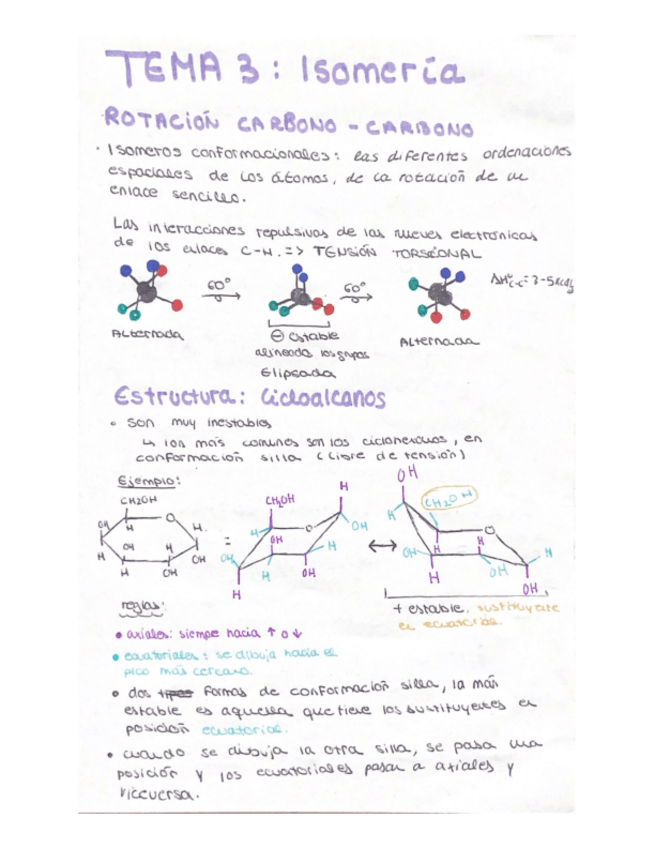 TEMA 3: Isomería
ROTACIÓN CARBONO - CARBONO
· Isomeros conformacionales: las diferentes ordenaciones
espaciales de los átomos, de la rotación de un
enlace sencillo.
Las interacciones repulsivas de las nueves electrónicas
de los enlaces C-H. => TENSIÓN TORSIONAL
60°
60°
Alternada
⊖ estable
alineados los grupos
Elipsada
Alternada
Estructura: Cicloalcanos
• son muy inestables
↳ los más comunes son los ciclohexanos, en
conformación silla (libre de tensión)
Ejemplo:
CH2OH
O
OH
H
H.
OH
H
H
OH
H
OH
=
CH2OH
H
H
O
OH
OH
H
OH
H
OH
H
↔
OH
CH2OH
H
O
OH
H
H
H
OH
H
OH
+ estable, sustituyente
en ecuatorial.
reglas:
• axiales: siempre hacia ↑ o ↓
• ecuatoriales: se dibuja hacia el
pico más cercano.
• dos formas de conformación silla, la más
estable es aquella que tiene los sustituyentes en
posición ecuatorial.
• cuando se dibuja la otra silla, se pasa una
posición y los ecuatoriales pasan a axiales y
viceversa.